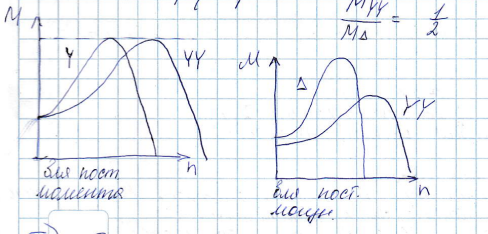 M
Y
YY
n
для пост
момента
MYY / MΔ = 1 / 2
M
Δ
YY
n
для пост.
мощн.